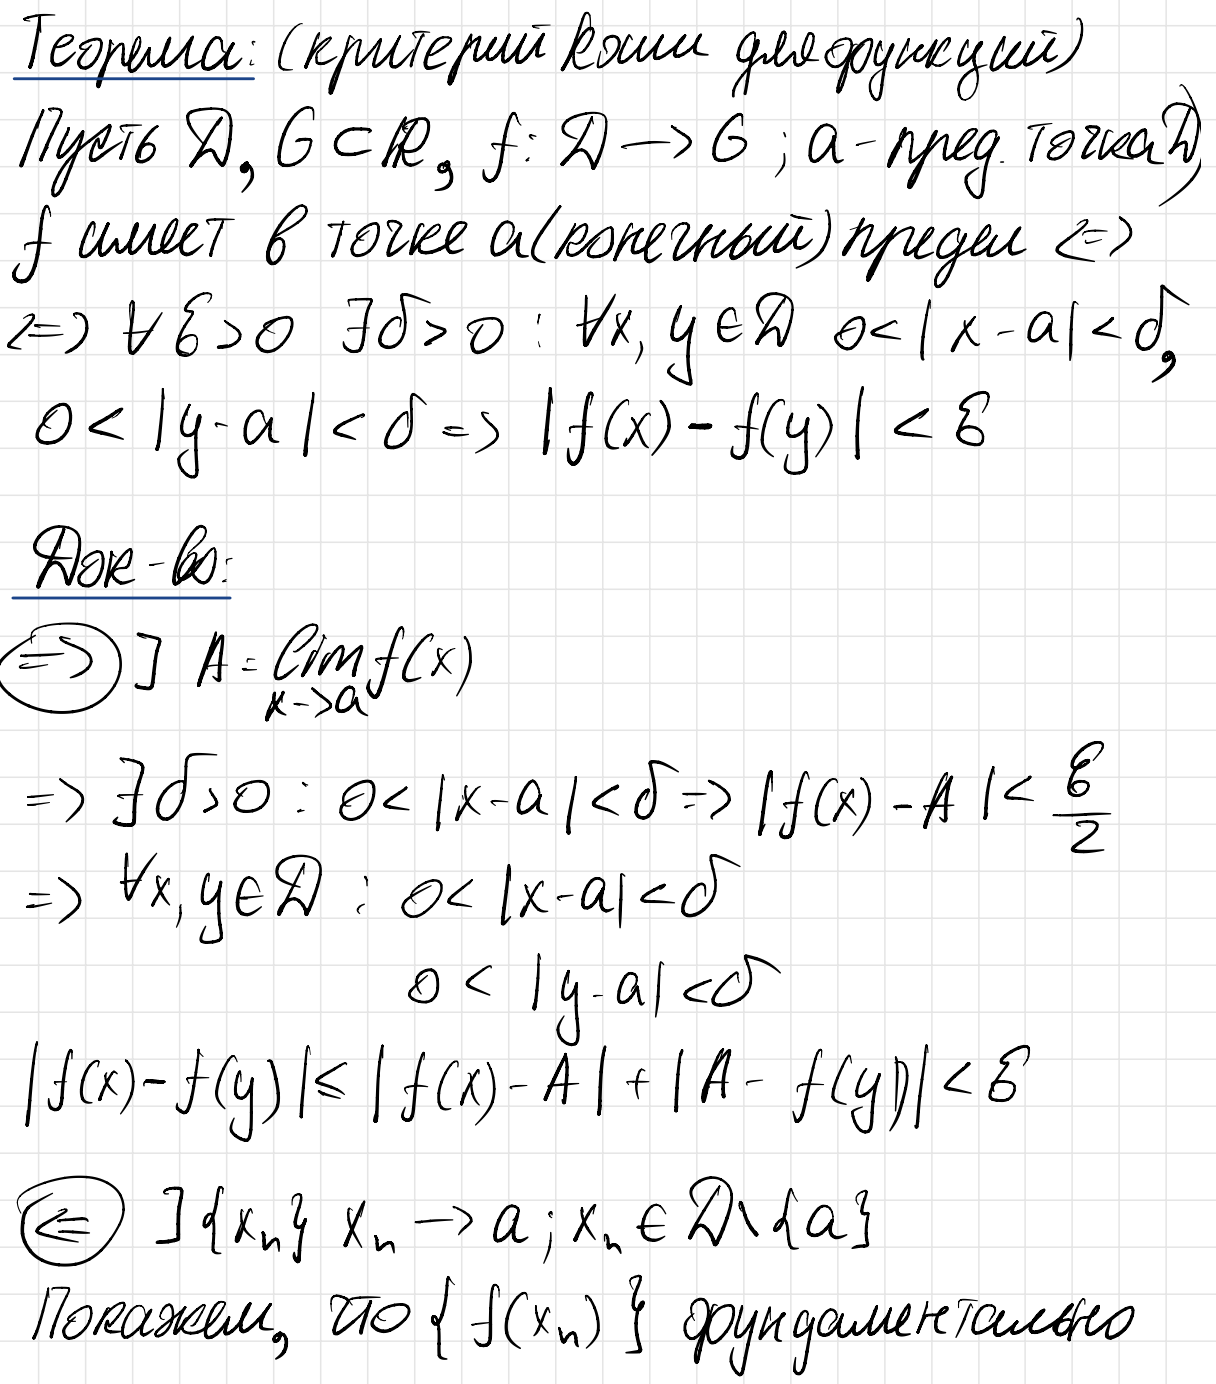 Теорема: (критерий Коши для функций)
Пусть D, G ⊂ R, f: D -> G ; a - пред. точка D,
f имеет в точке a (конечный) предел <=>
<=> ∀ε > 0 ∃δ > 0 : ∀x, y ∈ D 0 < |x - a| < δ,
0 < |y - a| < δ => |f(x) - f(y)| < ε
Док-во:
=> ] A = lim f(x)
x->a
=> ∃δ > 0 : 0 < |x - a| < δ => |f(x) - A| < ε/2
=> ∀x, y ∈ D : 0 < |x - a| < δ
0 < |y - a| < δ
|f(x) - f(y)| ≤ |f(x) - A| + |A - f(y)| < ε
<= ] {xₙ} xₙ -> a ; xₙ ∈ D \ {a}
Покажем, что {f(xₙ)} фундаментально